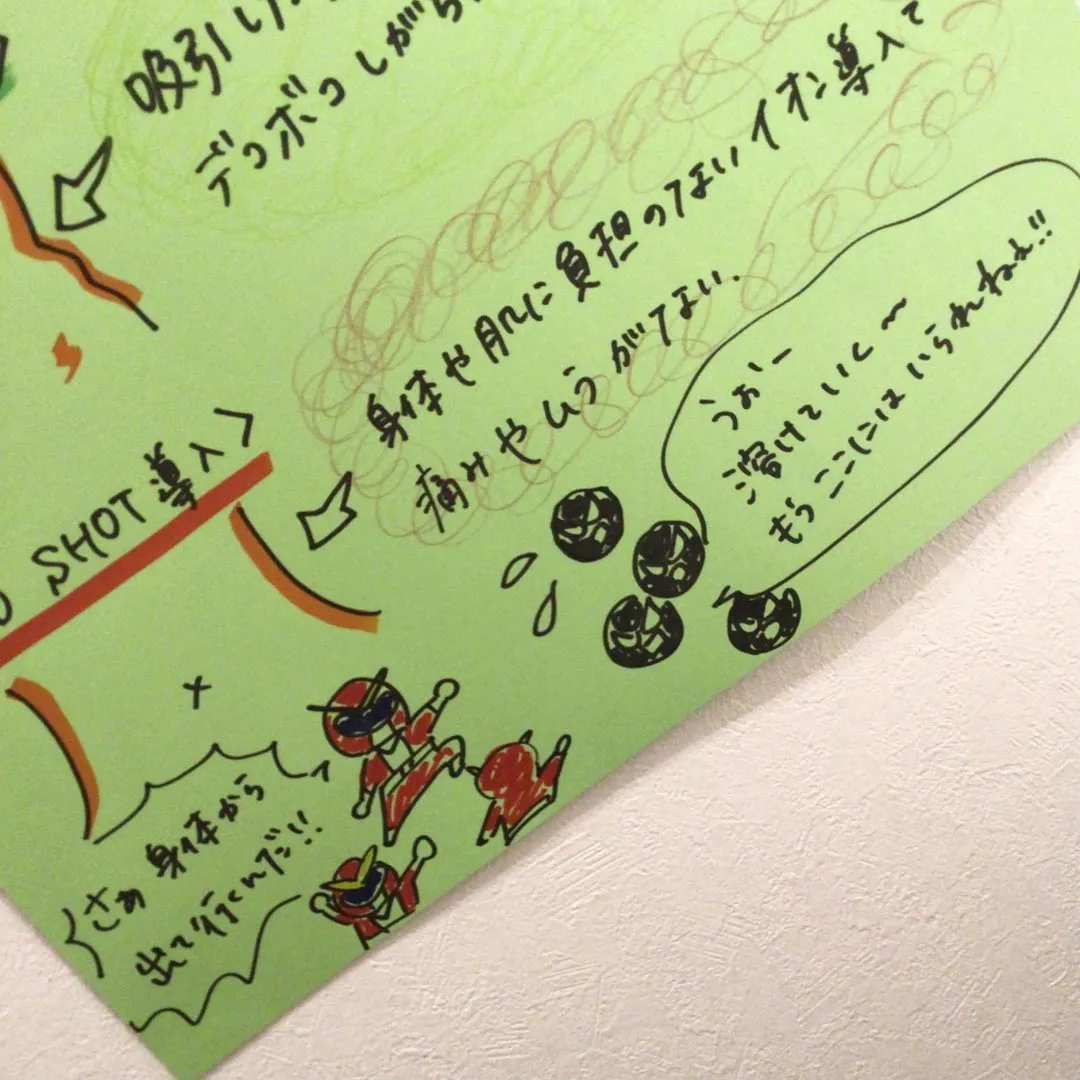 吸引し
デコボコしがち
身体や肌に負担のないイオン導入で
痛みやムラがない.
SHOT導入>
うおー
溶けていく〜
もうここにはいられねぇ!!
さぁ身体から
出て行くんだ!!